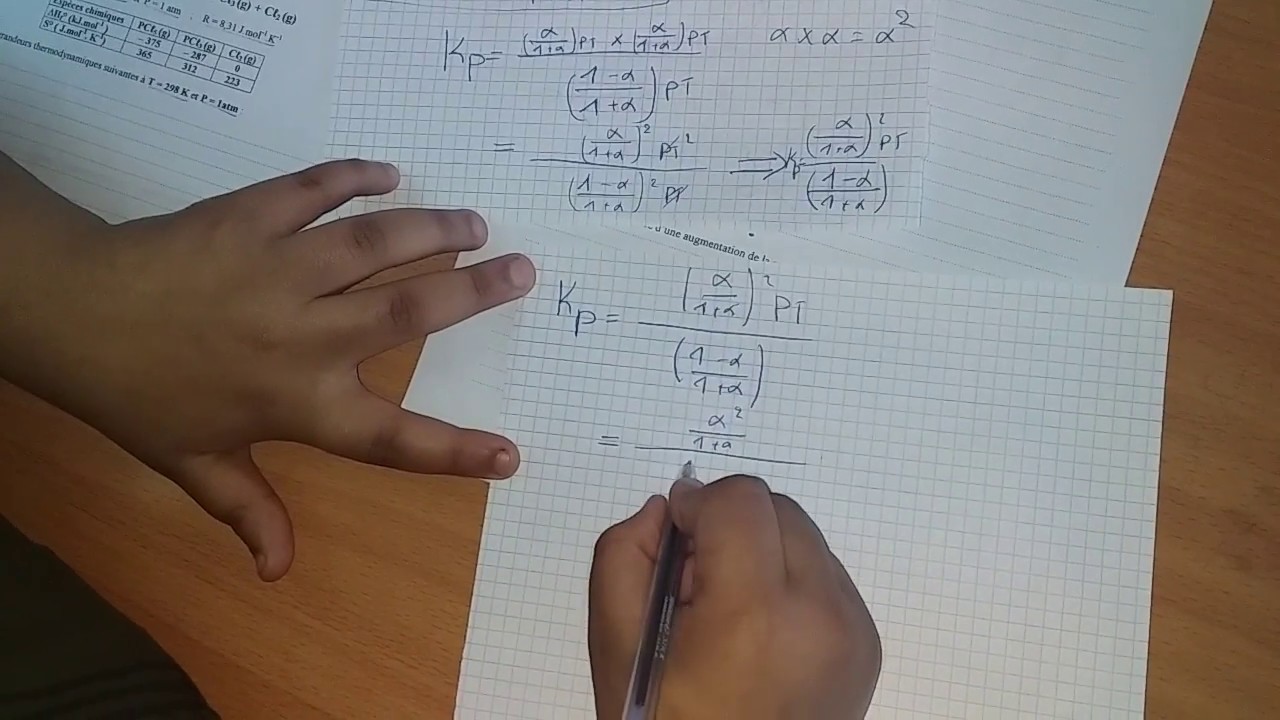 l₃(g) + Cl₂(g)
P = 1 atm , R = 8,31 J mol⁻¹ K⁻¹
Espèces chimiques PCl₅(g) PCl₃(g) Cl₂(g)
ΔHf° (kJ.mol⁻¹) −375 −287 0
S° (J.mol⁻¹.K⁻¹) 365 312 223
randeurs thermodynamiques suivantes à T = 298 K et P = 1atm
Kp = ((α/(1+α))PT × (α/(1+α))PT) / (((1−α)/(1+α))PT) α × α = α²
= ((α/(1+α))² PT²) / (((1−α)/(1+α))² PT) ⟹ Kp = ((α/(1+α))² PT) / ((1−α)/(1+α))
d une augmentation de l
Kp = ((α/(1+α))² PT) / ((1−α)/(1+α))
= (α²/(1+α)) /